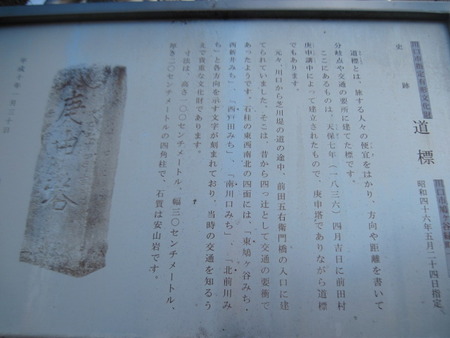 史跡
道標
昭和四十六年五月二十四日指定
道標とは、旅する人々の便宜をはかり、方向や距離を書いて
分岐点や交通の要所に建てた標です。
ここにあるものは、天保七年(一八三六)四月吉日に前田村
庚申講中によって建立されたもので、庚申塔でありながら道標
でもあります。
元々、川口から芝川堤の道の途中、前田五右衛門橋の入口に建
てられていました。そこは、昔から四つ辻として交通の要衝で
あったようです。石柱の東西南北の四面には、「東鳩ヶ谷みち・
西新井みち」、「西戸田みち」、「南川口みち」、「北前川み
ち」と各方向を示す文字が刻まれており、当時の交通を知るう
えで貴重な文化財であります。
寸法は、高さ一〇〇センチメートル、幅三〇センチメートル、
厚さ二〇センチメートルの四角柱で、石質は安山岩です。
平成十年